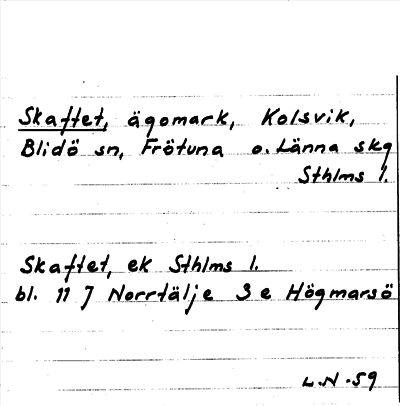 Skaftet, ägomark, Kolsvik,
Blidö sn, Frötuna o. Länna skg
Sthlms l.
Skaftet, ek Sthlms l.
bl. 11 J Norrtälje 3 e Högmarsö
L.N. -59